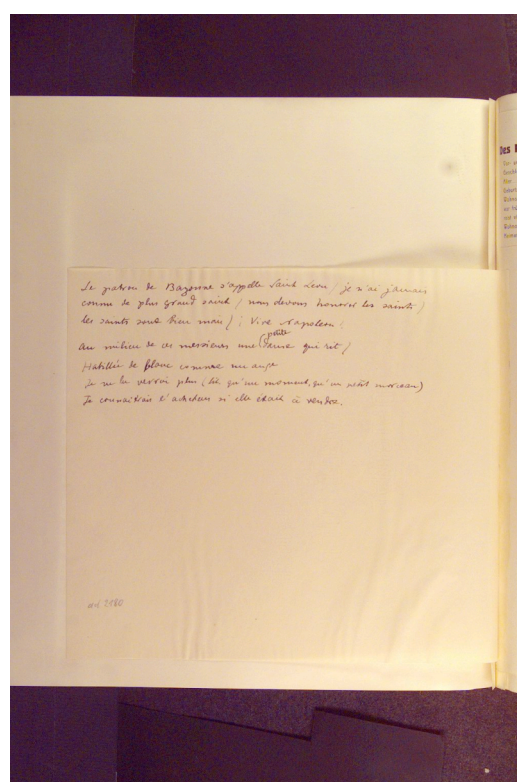 Le patron de Bayonne s'appelle Saint Leon / je n'ai jamais
connu de plus grand saint / nous devons honorer les saints /
les saints sont bien mais / : Vive Napoleon !
petite
Au milieu de ces messieurs une dame qui rit /
Habillée de blanc comme un ange
Je ne la verrai plus ( qu'un moment, qu'un petit morceau)
Je connaitrais l'acheteur si elle était à vendre.
Des